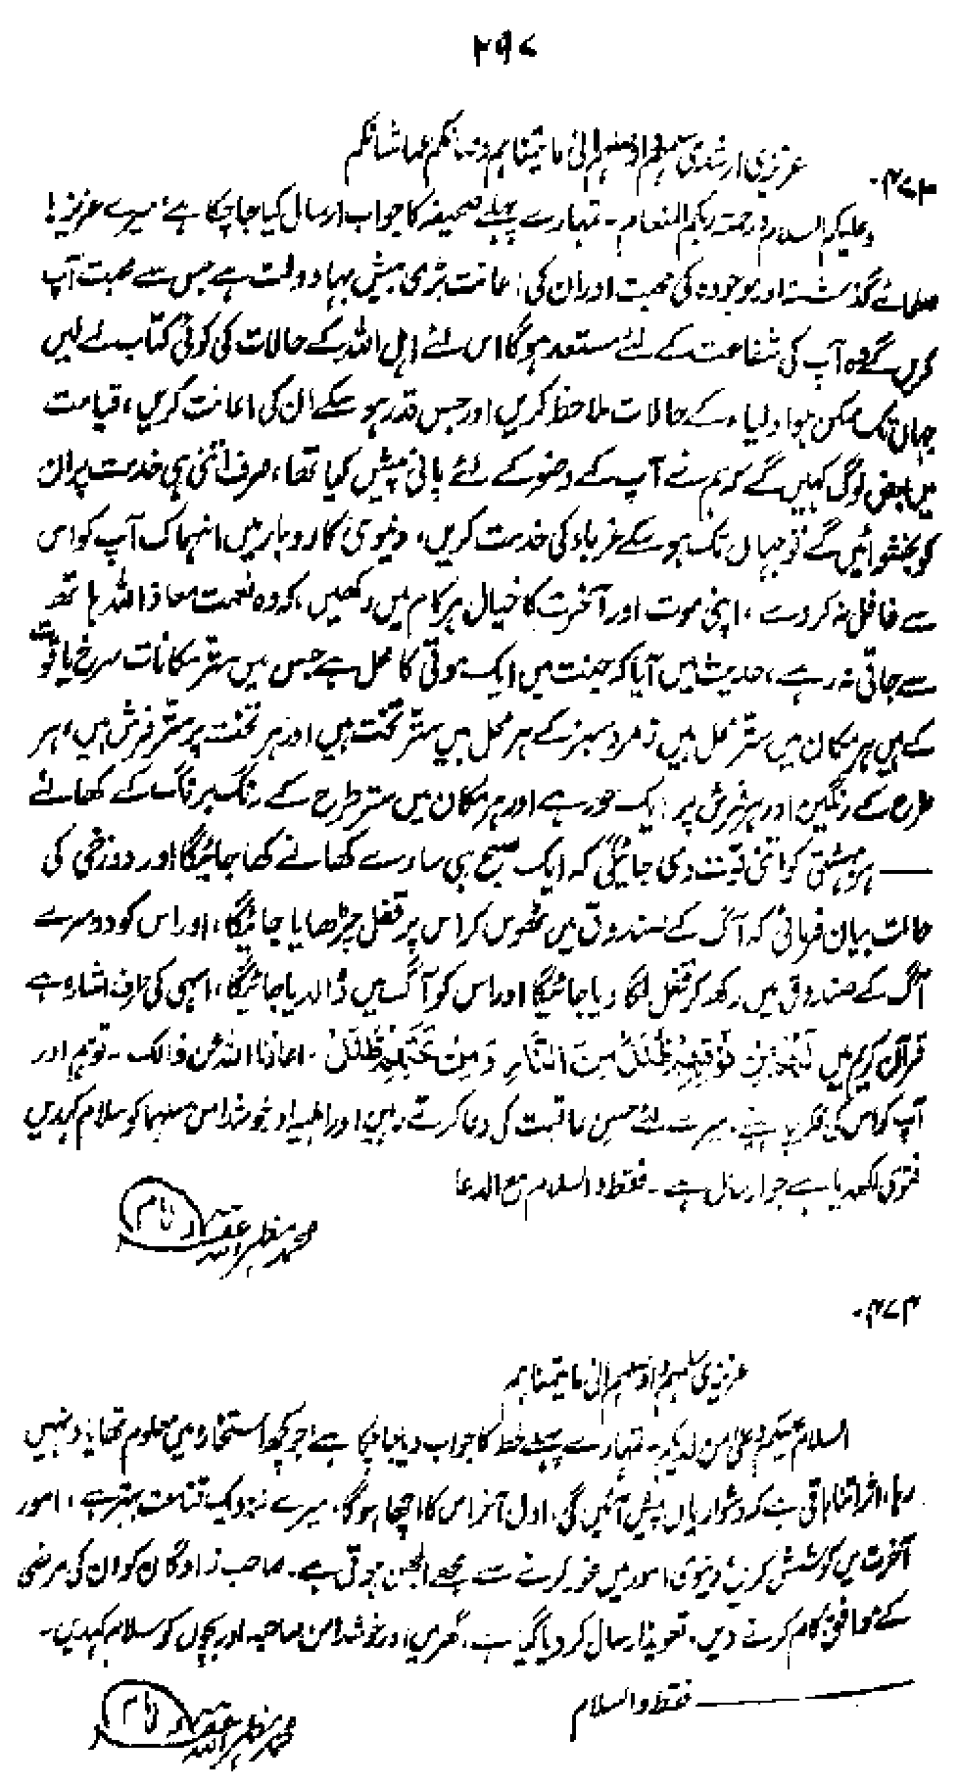 ۲۹۷
۴۷۳۔
عزیزی ارشدی سلمہم اوصلہم الیٰ ما یتمناہم
وعلیکم السلام ورحمۃ ربکم المنعام۔ تمہارے پہلے صحیفہ کا جواب ارسال کیا جاچکا ہے، میرے عزیز!
صلحائے گذشتہ اور موجودہ کی محبت اور ان کی اعانت بڑی بیش بہا دولت ہے جس سے محبت آپ
کریں گے وہ آپ کی شفاعت کے لئے مستعد ہوگا اس لئے اہل اللہ کے حالات کی کوئی کتاب لے لیں
جہاں تک ممکن ہو اولیاء کے حالات ملاحظہ کریں اور جس قدر ہو سکے ان کی اعانت کریں، قیامت
میں بعض لوگ کہیں گے کہ ہم نے آپ کے وضو کے لئے پانی پیش کیا تھا، صرف اتنی ہی خدمت پر ان
کو بخشوائیں گے تو جہاں تک ہو سکے غرباء کی خدمت کریں، دنیوی کاروبار میں انہماک آپ کو اس
سے غافل نہ کردے، اپنی موت اور آخرت کا خیال ہر کام میں رکھیں، کہ وہ نعمت معاذ اللہ ہاتھ
سے جاتی نہ رہے، حدیث میں آیا کہ جنت میں ایک موتی کا محل ہے جس میں ستر مکانات سرخ یاقوت
کے ہیں ہر مکان میں ستر محل ہیں زمرد سبز کے ہر محل میں ستر تخت ہیں اور ہر تخت پر ستر فرش ہیں، ہر
طرح کے رنگین اور ہر فرش پر ایک حور ہے اور ہر مکان میں ستر طرح کے رنگ برنگ کے کھانے
—— ہر بہشتی کو اتنی قوت دی جائیگی کہ ایک صبح ہی سارے کھانے کھا جائیگا اور دوزخی کی
حالت بیان فرمائی کہ آگ کے صندوق میں ٹھوس کر اس پر قفل چڑھایا جائیگا، اور اس کو دوسرے
آگ کے صندوق میں رکھ کر قفل لگا دیا جائیگا اور اس کو آگ میں ڈالدیا جائیگا، اسی کی طرف اشارہ ہے
قرآن کریم میں لَهُمْ مِنْ فَوْقِهِمْ ظُلَلٌ مِنَ النَّارِ وَمِنْ تَحْتِهِمْ ظُلَلٌ۔ اعاذنا اللہ من ذالک۔ تو ہم اور
آپ کو اس کی فکر چاہئے۔ میرے لئے حسن عاقبت کی دعا کرتے رہیں اور اہلیہ اور خوشدامن سلمہما کو سلام کہدیں
فتویٰ لکھدیا ہے جو ارسال ہے۔ فقط والسلام مع الدعا
محمد مظہر اللہ غفرلہ
۴۷۴۔
عزیزی سلمہم اوصلہم الیٰ ما یتمناہم
السلام علیکم وعلیٰ من لدیکم۔ تمہارے پہلے خط کا جواب دیا جاچکا ہے جو کچھ استخارہ میں معلوم تھا یاد نہیں
رہا، اثر اتنا باقی ہے کہ دشواریاں پیش آئیں گی، اول آخر اس کا اچھا ہوگا، میرے نزدیک قناعت بہتر ہے، امور
آخرت میں کوشش کریں دنیوی امور میں غور کرنے سے مجھے الجھن ہوتی ہے۔ صاحب زادگان کو ان کی مرضی
کے موافق کام کرنے دیں۔ تعویذ ارسال کردیا گیا ہے، گھر میں اور خوشدامن صاحبہ اور بچوں کو سلام کہدیں۔
—— فقط والسلام
محمد مظہر اللہ غفرلہ